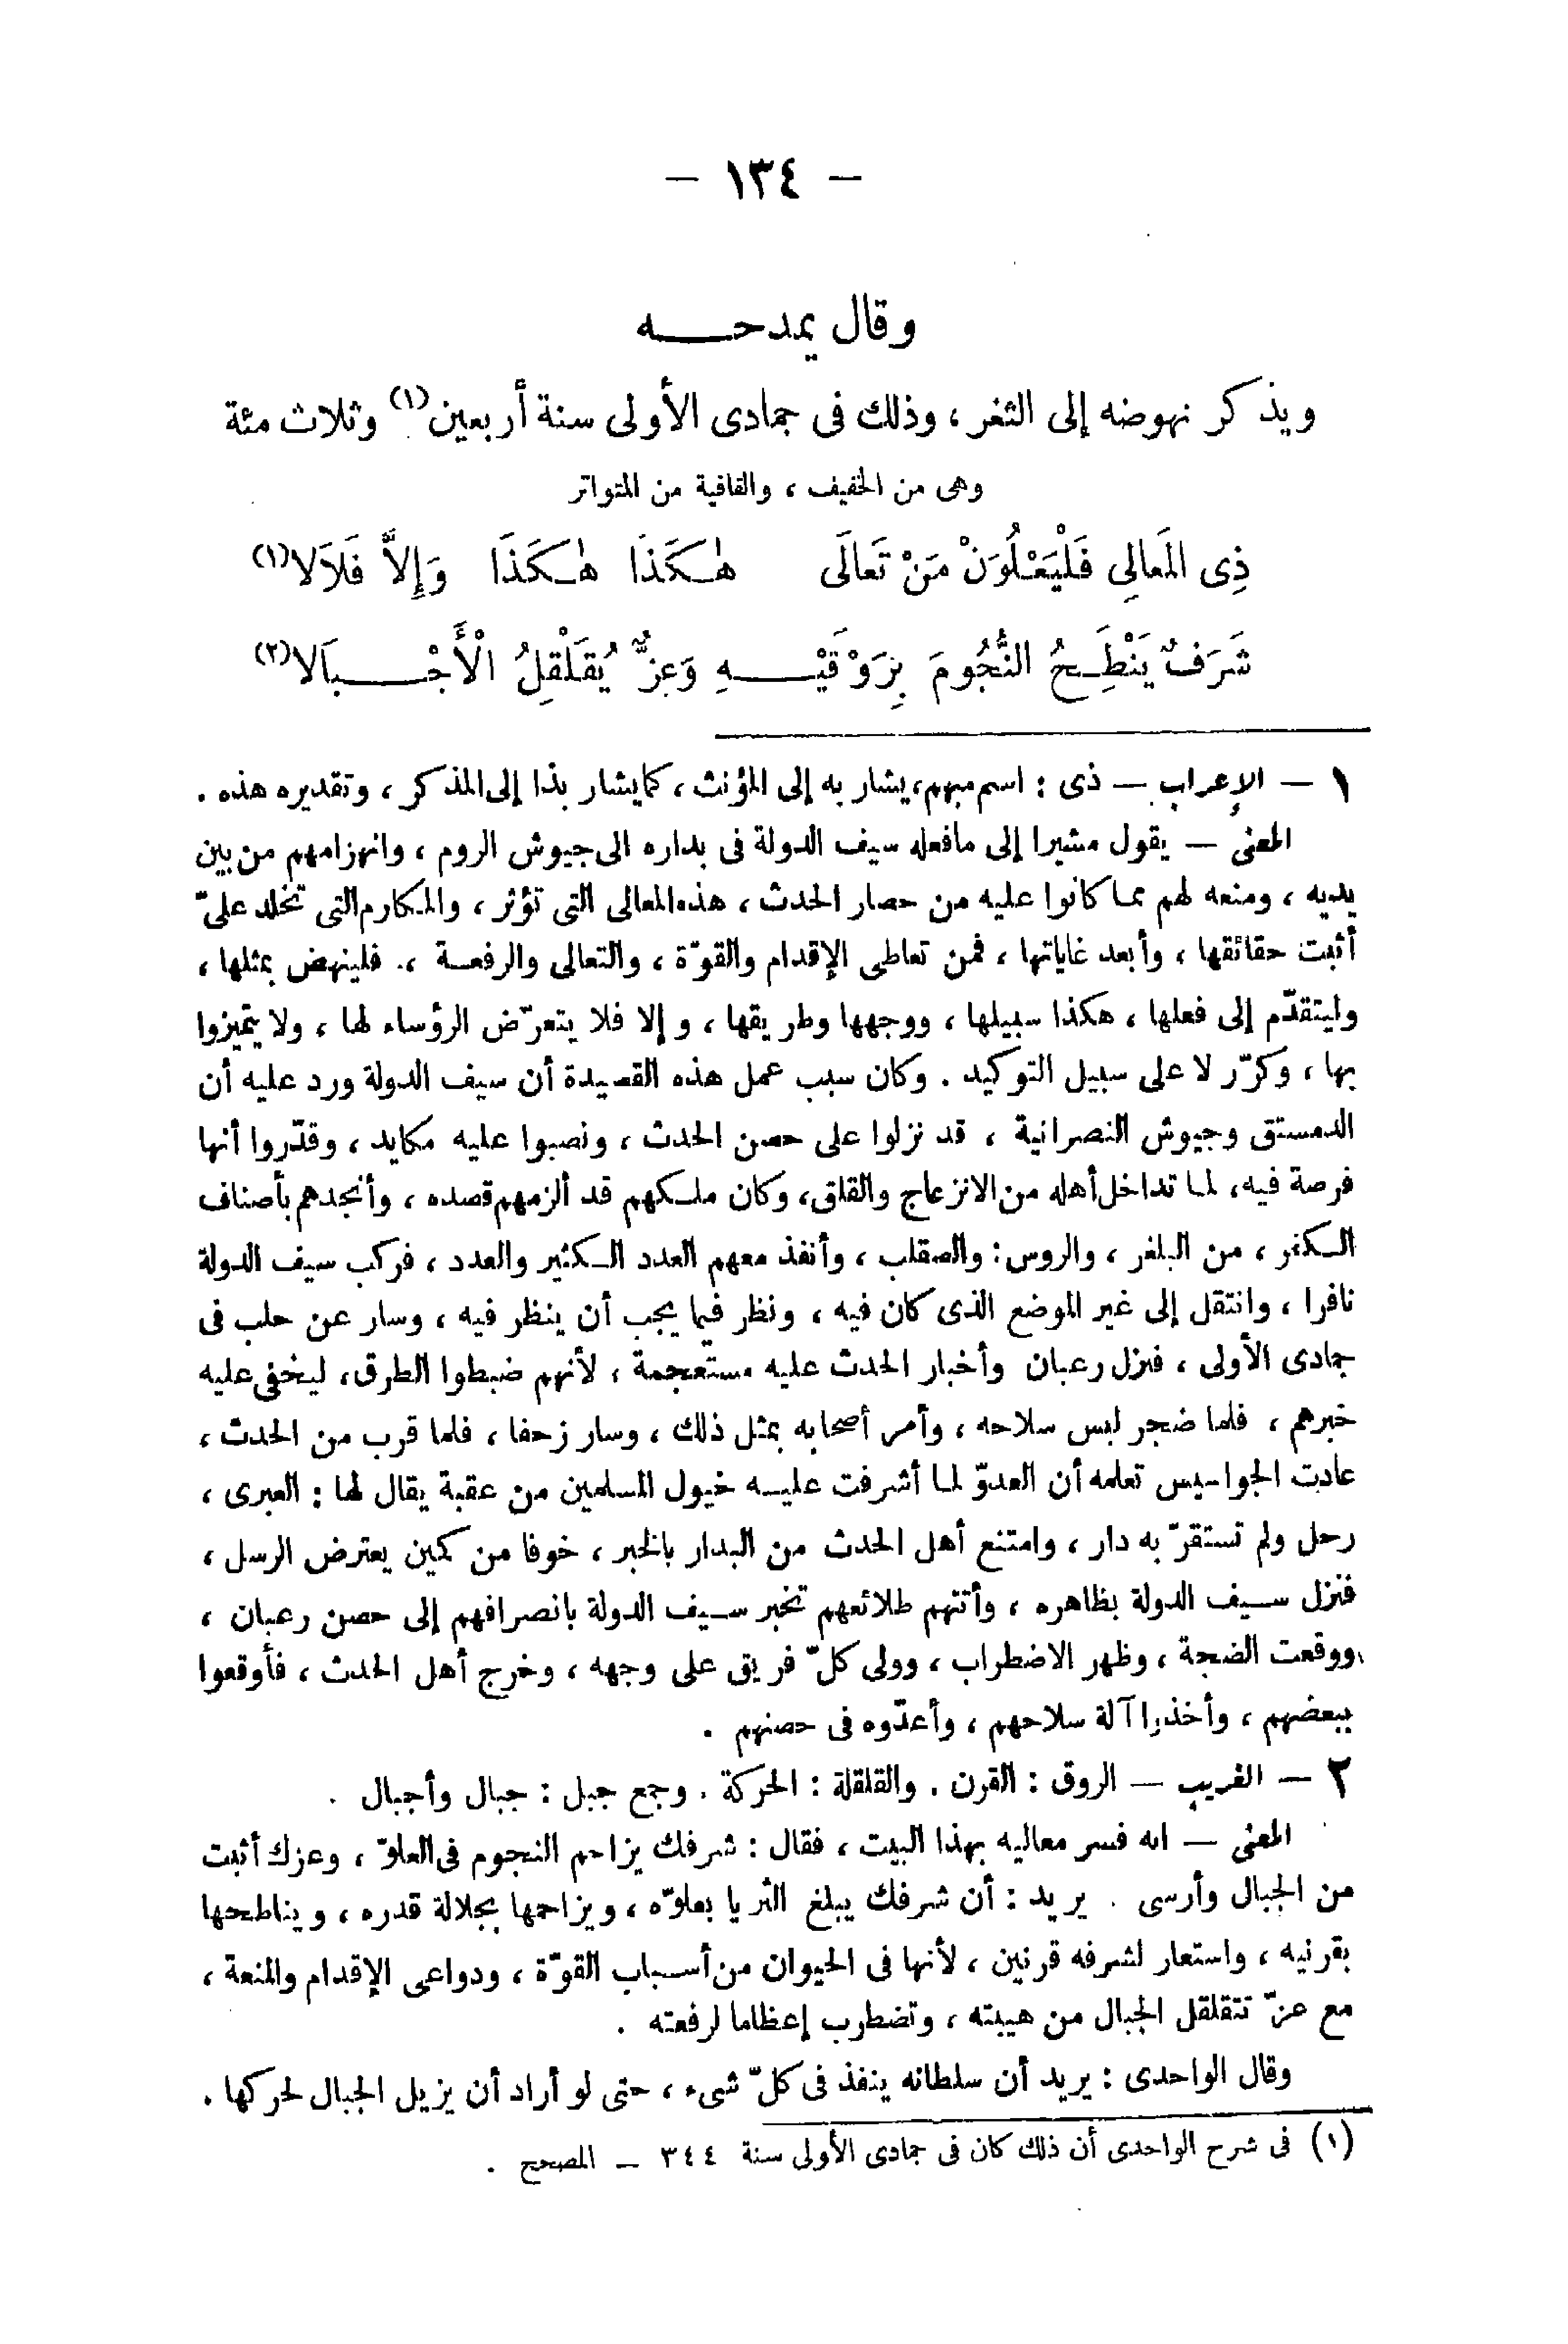 – ١٣٤ –
وقال يمدحه
ويذكر نهوضه إلى الثغر ، وذلك فى جمادى الأولى سنة أربعين(١) وثلاث مئة
وهى من الخفيف ، والقافية من المتواتر
ذِى المَعالِى فَلْيَعْلُوَنْ مَنْ تَعالَى هٰكَذَا هٰكَذَا وَإِلاَّ فَلاَلا(١)
شَرَفٌ يَنْطَِحُ النُّجُومَ بِرَوْقَيْهِ وَعِزٌّ يُقَلْقِلُ الْأَجْبَالا(٢)
١ – الإعراب – ذى : اسم مبهم، يشار به إلى المؤنث ، كما يشار بذا إلى المذكر ، وتقديره هذه .
المعنى – يقول مشيرا إلى مافعله سيف الدولة فى بداره الى جيوش الروم ، وانهزامهم من بين
يديه ، ومنعه لهم مما كانوا عليه من حصار الحدث ، هذه المعالى التى تؤثر ، والمكارم التى تخلد علىّ
أثبت حقائقها ، وأبعد غاياتها ، فمن تعاطى الإقدام والقوّة ، والتعالى والرفعة ، فلينهض بمثلها ،
وليتقدّم إلى فعلها ، هكذا سبيلها ، ووجهها وطريقها ، وإلا فلا يتعرّض الرؤساء لها ، ولا يتميزوا
بها ، وكرّر لا على سبيل التوكيد . وكان سبب عمل هذه القصيدة أن سيف الدولة ورد عليه أن
الدمستق وجيوش النصرانية ، قد نزلوا على حصن الحدث ، ونصبوا عليه مكايد ، وقدّروا أنها
فرصة فيه، لما تداخل أهله من الانزعاج والقلق، وكان ملكهم قد ألزمهم قصده ، وأنجدهم بأصناف
الكفر ، من البلغر ، والروس: والصقلب ، وأنفذ معهم العدد الكثير والعدد ، فركب سيف الدولة
نافرا ، وانتقل إلى غير الموضع الذى كان فيه ، ونظر فيما يجب أن ينظر فيه ، وسار عن حلب فى
جمادى الأولى ، فنزل رعبان وأخبار الحدث عليه مستعجمة ، لأنهم ضبطوا الطرق، ليخفى عليه
خبرهم ، فلما ضجر لبس سلاحه ، وأمر أصحابه بمثل ذلك ، وسار زحفا ، فلما قرب من الحدث ،
عادت الجواسيس تعلمه أن العدوّ لما أشرفت عليه خيول المسلمين من عقبة يقال لها : العبرى ،
رحل ولم تستقرّ به دار ، وامتنع أهل الحدث من البدار بالخبر ، خوفا من كمين يعترض الرسل ،
فنزل سيف الدولة بظاهره ، وأتتهم طلائعهم تخبر سيف الدولة بانصرافهم إلى حصن رعبان ،
ووقعت الضجة ، وظهر الاضطراب ، وولى كلّ فريق على وجهه ، وخرج أهل الحدث ، فأوقعوا
ببعضهم ، وأخذوا آلة سلاحهم ، وأعدّوه فى حصنهم .
٢ – الغريب – الروق : القرن . والقلقلة : الحركة . وجمع جبل : جبال وأجبال .
المعنى – انه فسر معاليه بهذا البيت ، فقال : شرفك يزاحم النجوم فى العلوّ ، وعزك أثبت
من الجبال وأرسى . يريد : أن شرفك يبلغ الثريا بعلوّه ، ويزاحمها بجلالة قدره ، ويناطحها
بقرنيه ، واستعار لشرفه قرنين ، لأنها فى الحيوان من أسباب القوّة ، ودواعى الإقدام والمنعة ،
مع عزّ تتقلقل الجبال من هيبته ، وتضطرب إعظاما لرفعته .
وقال الواحدى : يريد أن سلطانه ينفذ فى كلّ شىء ، حتى لو أراد أن يزيل الجبال لحركها .
(١) فى شرح الواحدى أن ذلك كان فى جمادى الأولى سنة ٣٤٤ – المصحح .